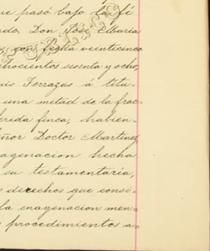 ue pasó bajo la fé
do. Don José Maria
con fecha veinticinco
chocientos sesenta y ocho,
uis Terrazas á títu-
una mitad de la frac-
erida finca, habien-
eñor Doctor Martinez
nagenacion hecha
su testamentaria,
s derechos que consi-
la enagenacion men-
s procedimientos a-